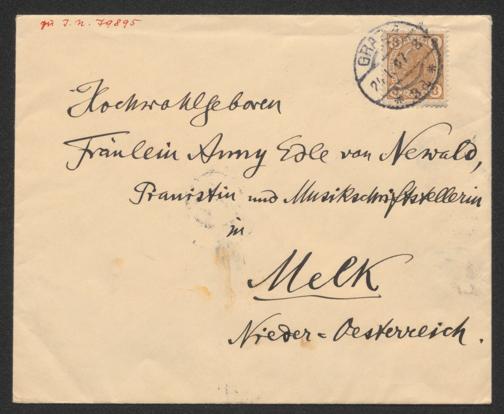 zu I. N. 79895
GRAZ
Hochwohlgeboren
Fräulein Anny Edle von Newald,
Pianistin und Musikschriftstellerin
in
Melk
Nieder-Oesterreich.